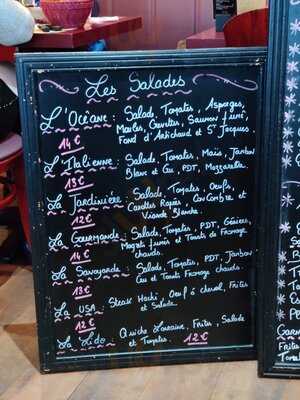 Les Salades
L'Océane : Salade, Tomates, Asperges,
Moules, Crevettes, Saumon fumé,
14 € Fond d'Artichaud et St Jacques
L'Italienne : Salade, Tomates, Maïs, Jambon
13 € Blanc et Cru, PDT, Mozzarella.
La Jardinière : Salade, Tomates, Oeufs,
Carottes Rapées, Concombre et
12 € Viande Blanche.
La Gourmande : Salade, Tomates, PDT, Gésiers,
Magret fumés et Toasts de Fromage
14 € chauds.
La Savoyarde : Salade, Tomates, PDT, Jambon
Cru et Toasts Fromage chauds.
13 €
La USA : Steak Haché, Oeuf à cheval, Frites
et Salade.
12 €
La Lido : Quiche Lorraine, Frites, Salade
et Tomates. 12 €
Frites